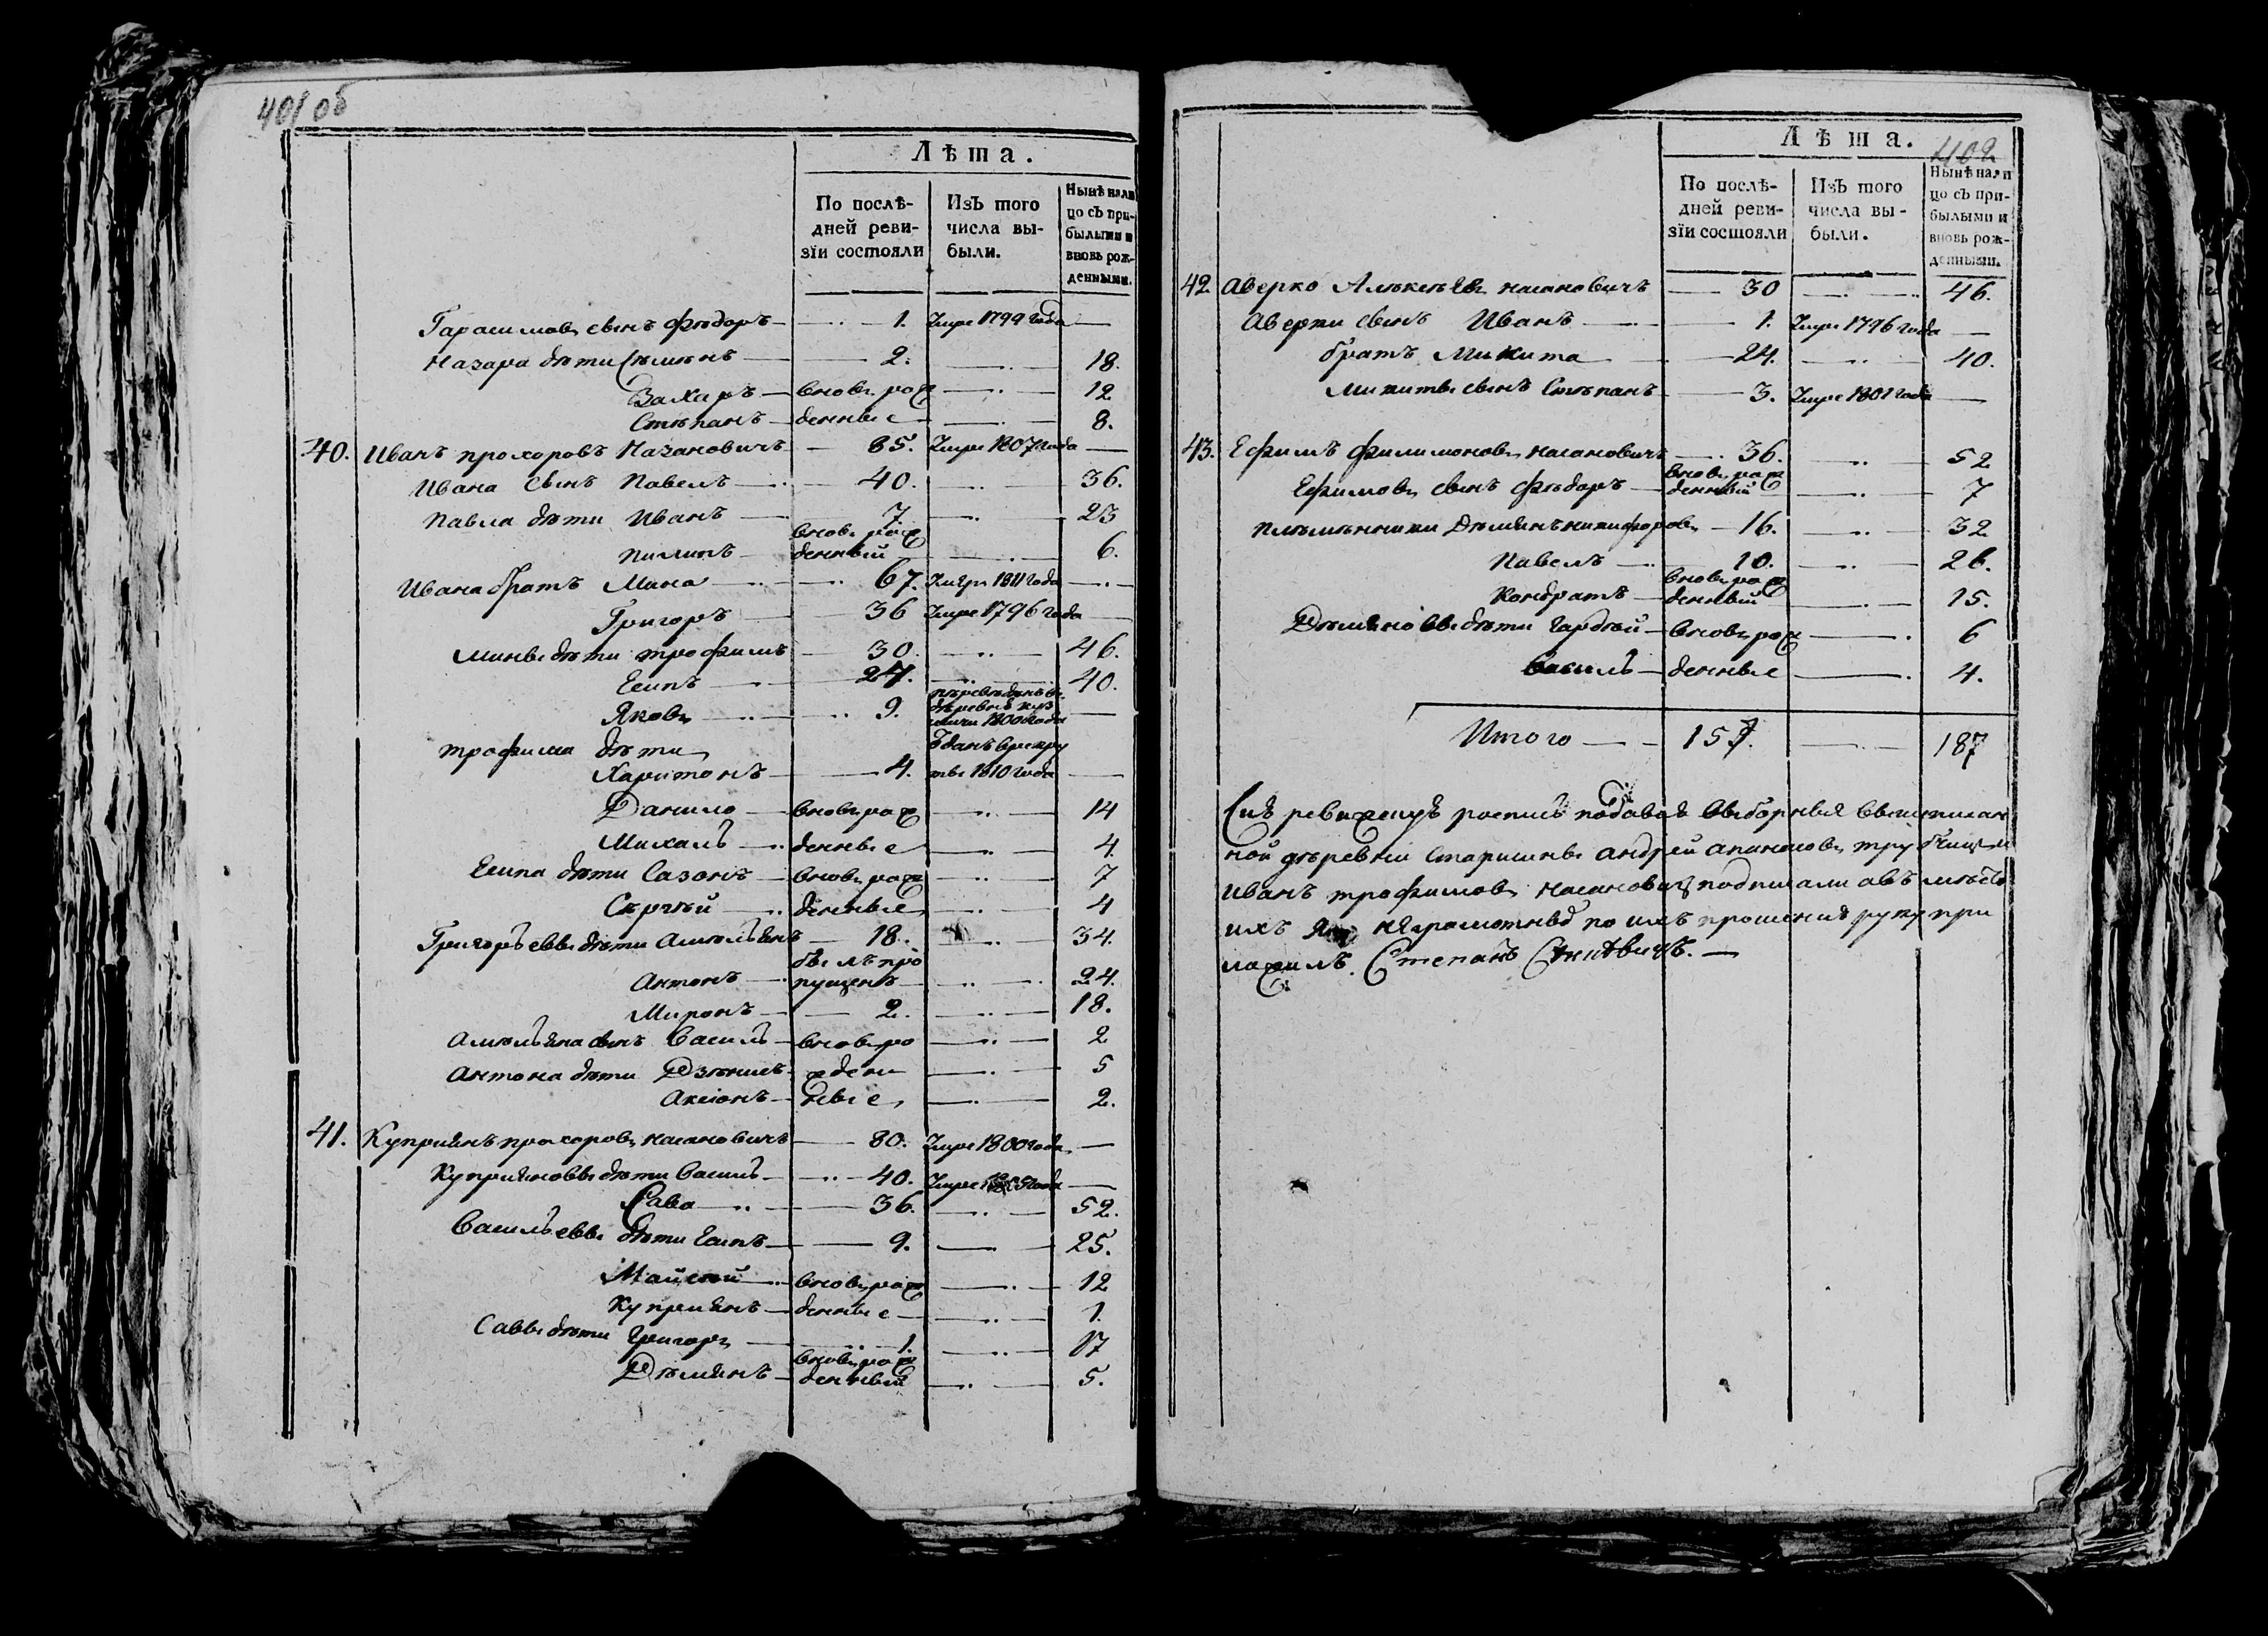 401 об
Лѣта.
По послѣдней ревизіи состояли
Изъ того числа выбыли.
Нынѣ нали цо съ прибылыми и вновь рожденными.
Гарасимовъ сынъ Фѣдоръ — 1. Умре 1799 года —
Назара дѣти Сѣмѣнъ — 2. — 18.
Захаръ — вновь рож — 12
Стѣпанъ — денные — 8.
40. Иванъ прохоровъ Казановичъ — 85. Умре 1807 года —
Ивана сынъ Павелъ — 40. — 36.
Павла дѣти Иванъ — 7. — 23
Пилипъ — вновь рож денный — 6.
Ивана братъ Мина — 67. Умре 1811 года —
Григоръ — 36 Умре 1796 года —
Мины дѣти трофимъ — 30. — 46.
Есипъ — 24. — 40.
Яковъ — 9. 1800 года —
трофима дѣти
Харитонъ — 4. 1810 года —
Данило — вновь рож — 14
Михалъ — денные — 4.
Есипа дѣти Сазонъ — вновь рож — 7
Сѣргѣй — денные — 4
Григорьевы дѣти Амѣльянъ — 18. — 34.
Антонъ — былъ про пущенъ — 24.
Миронъ — 2. — 18.
Амѣльяна сынъ Василь — вновь ро — 2
Антона дѣти Дзѣнисъ — жден — 5
Аксіонъ — ные — 2.
41. Купріянъ прохоровъ касановичъ — 80. Умре 1800 года —
Купріяновы дѣти Василь — 40. Умре года —
Сава — 36. — 52.
Васильевы дѣти Есипъ — 9. — 25.
Майсей — вновь рож — 12
Купреянъ — денные — 1.
Саввы дѣти Григоръ — 1. — 17
Дѣмянъ — вновь рож денный — 5.
402
Лѣта.
По послѣдней ревизіи состояли
Изъ того числа выбыли.
Нынѣ нали цо съ прибылыми и вновь рожденными.
42. Аверко Алѣксѣевъ касановичъ — 30 — 46.
Аверки сынъ Иванъ — 1. Умре 1796 года —
братъ Микита — 24. — 40.
Микиты сынъ Стѣпанъ — 3. Умре 1801 года —
43. Ефимъ филимоновъ касановичъ — 36. — 52
Ефимовъ сынъ Фѣдоръ — вновь рож денный — 7
плѣмѣнники Дѣмянъ никифоровъ — 16. — 32
Павелъ — 10. — 26.
Кондратъ — вновь рож денный — 15.
Дѣмяновы дѣти Гардѣй — вновь рож — 6
Василь — денные — 4.
Итого — 157. — 187
Сию ревижскую роспись подавая выборныя вышеписан
ной дѣревни Старшины андрей апанасовъ
Иванъ трофимовъ касановичъ подписали а въ мѣсто
ихъ нѣграмотныхъ по ихъ прошению руку при
ложилъ. Степанъ